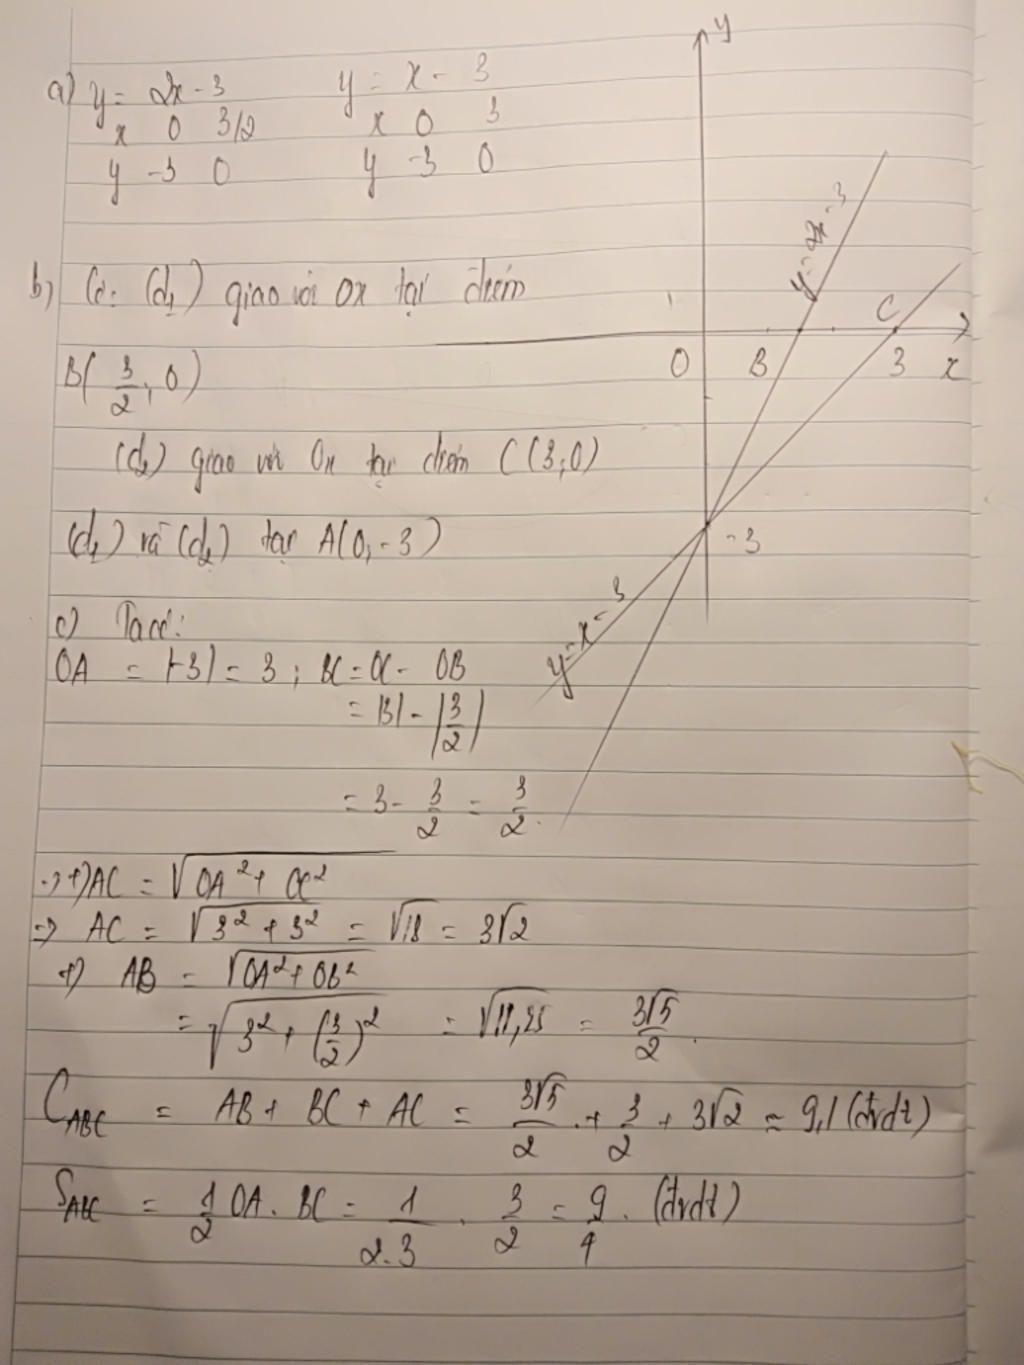 a) y = 2x - 3 y = x - 3
x 0 3/2 x 0 3
y -3 0 y -3 0
b) Có: (d₁) giao với Ox tại điểm
B(3/2, 0)
(d₂) giao với Ox tại điểm C(3;0)
(d₁) và (d₂) tại A(0,-3)
c) Ta có:
OA = |-3| = 3 ; BC = OC - OB
= |3| - |3/2|
= 3 - 3/2 = 3/2.
→ +) AC = √(OA² + OC²)
⇒ AC = √(3² + 3²) = √18 = 3√2
+) AB = √(OA² + OB²)
= √(3² + (3/2)²) = √11,25 = 3√5/2.
C_ABC = AB + BC + AC = 3√5/2 + 3/2 + 3√2 ≈ 9,1 (đvdt)
S_ABC = 1/2 OA . BC = 1/2.3 . 3/2 = 9/4. (đvdt)
y
y = 2x - 3
C
O B 3 x
-3
y = x - 3